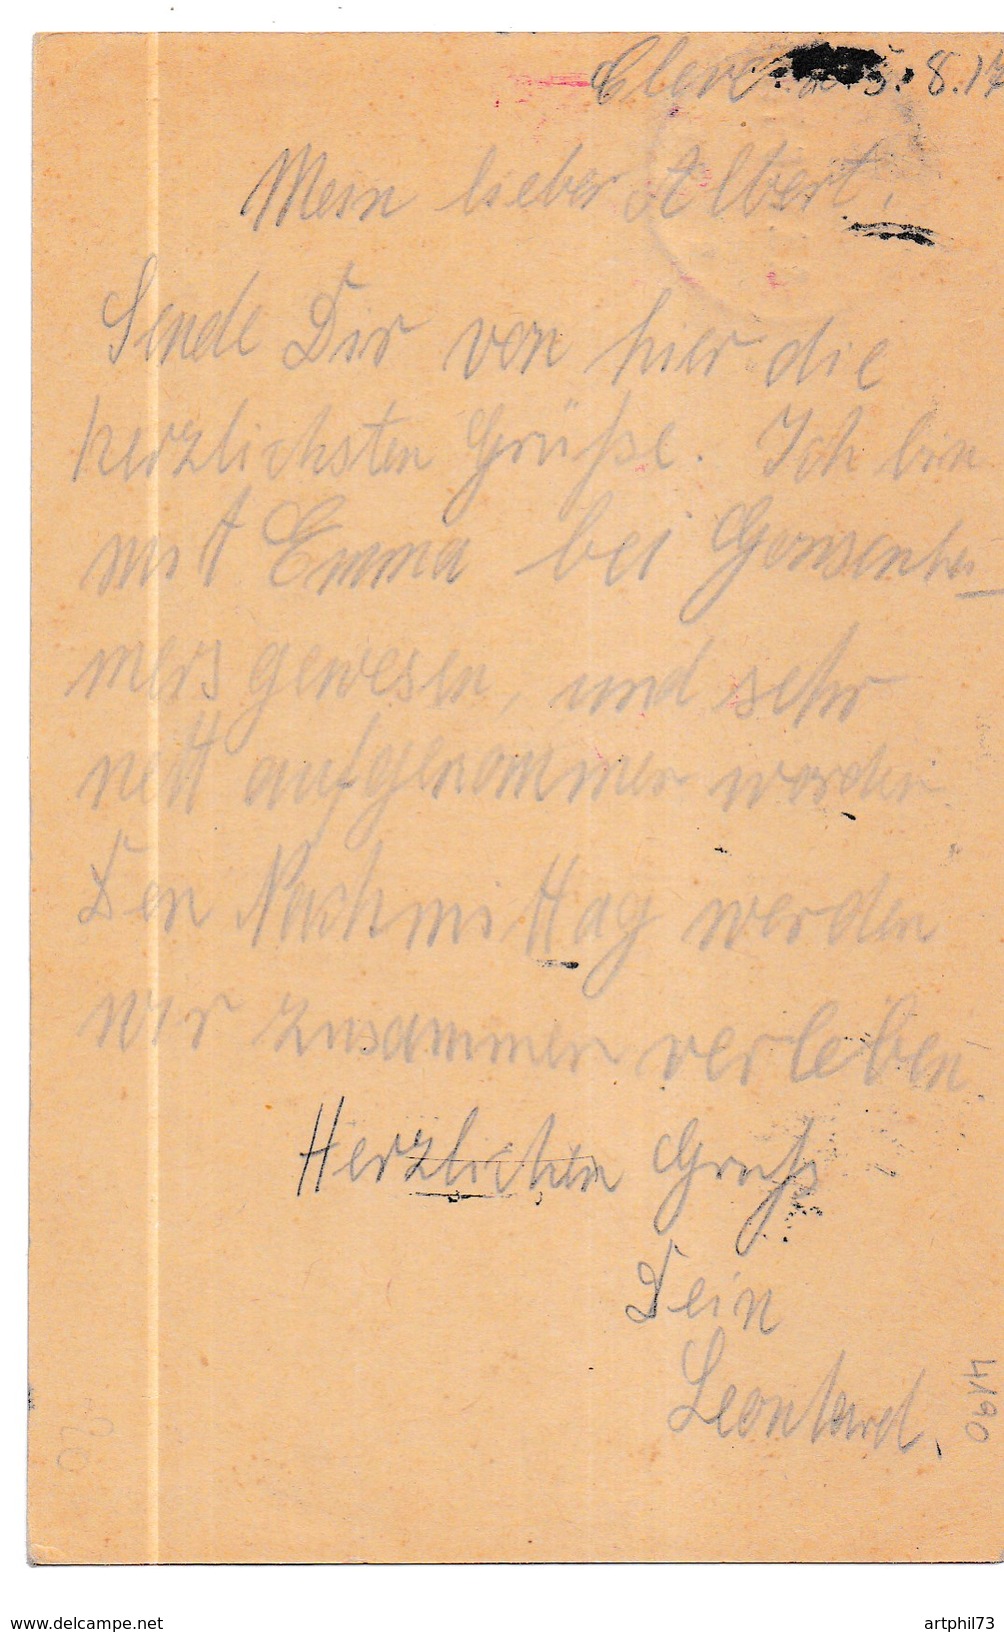 Cleve 5. 8.17
Mein lieber Albert!
Sende Dir von hier die
herzlichsten Grüße. Ich bin
mit Emma bei
mers gewesen, und sehr
nett aufgenommen worden
Den Nachmittag werden
wir zusammen verleben
Herzlichen Gruß
Dein
Leonhard.
4190
www.delcampe.net
artphil73